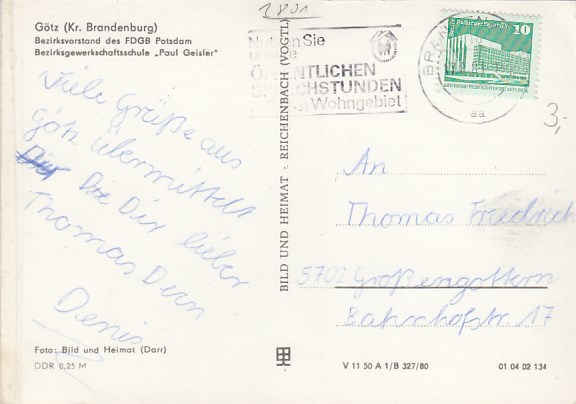 Götz (Kr. Brandenburg)
Bezirksvorstand des FDGB Potsdam
Bezirksgewerkschaftsschule „Paul Geisler"
Viele Grüße aus
Götz übermittelt
Dir lieber
Thomas Dein
Denis
Foto: Bild und Heimat (Darr)
DDR 0,25 M
BILD UND HEIMAT · REICHENBACH (VOGTL)
1801
Nutzen Sie
unsere
ÖFFENTLICHEN
SPRECHSTUNDEN
Wohngebiet
BRAN
aa
10
3,-
An
Thomas Friedrich
5702 Großengottern
Bahnhofstr 17
V 11 50 A 1/B 327/80
01 04 02 134